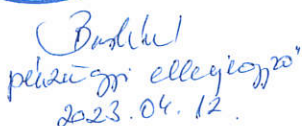 pénzügyi ellenjegyző
2023.04.12.